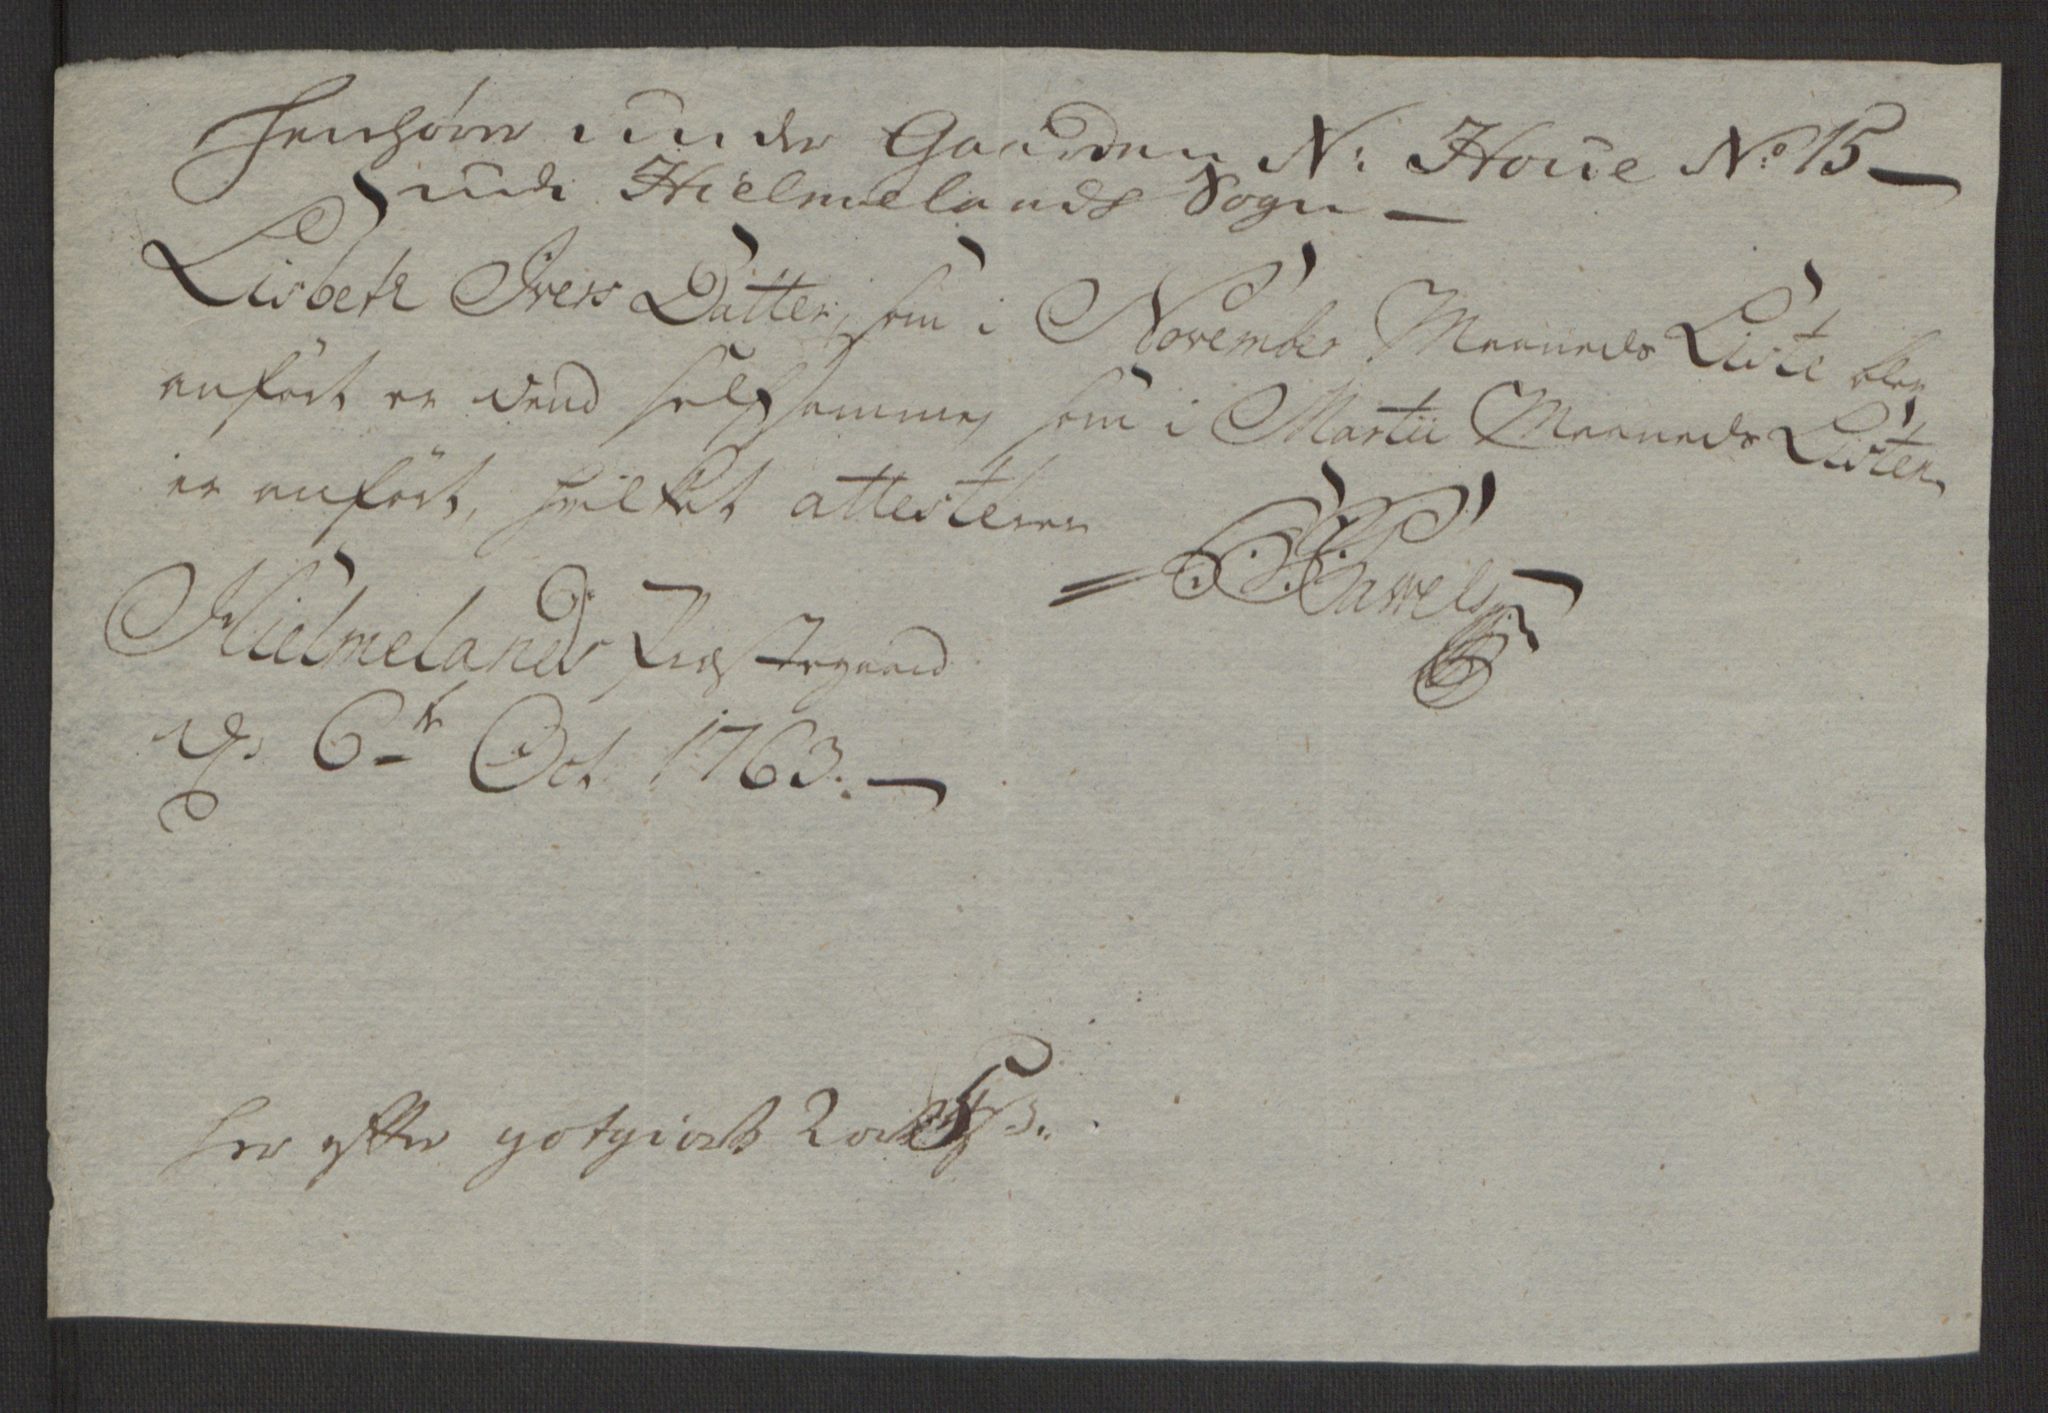 Henhører under Gaarden N: Houe No 15
udi Hielmelands Sogn
Lisbeth Ivers Datter, som i November Maaneds Liste blev
anført er dend selfsamme, som i Martii Maaneds Listen
er anført, hvilket attesterer
Hielmelands Præstegaard
d. 6te Oct 1763.
her efter gotgiort 2